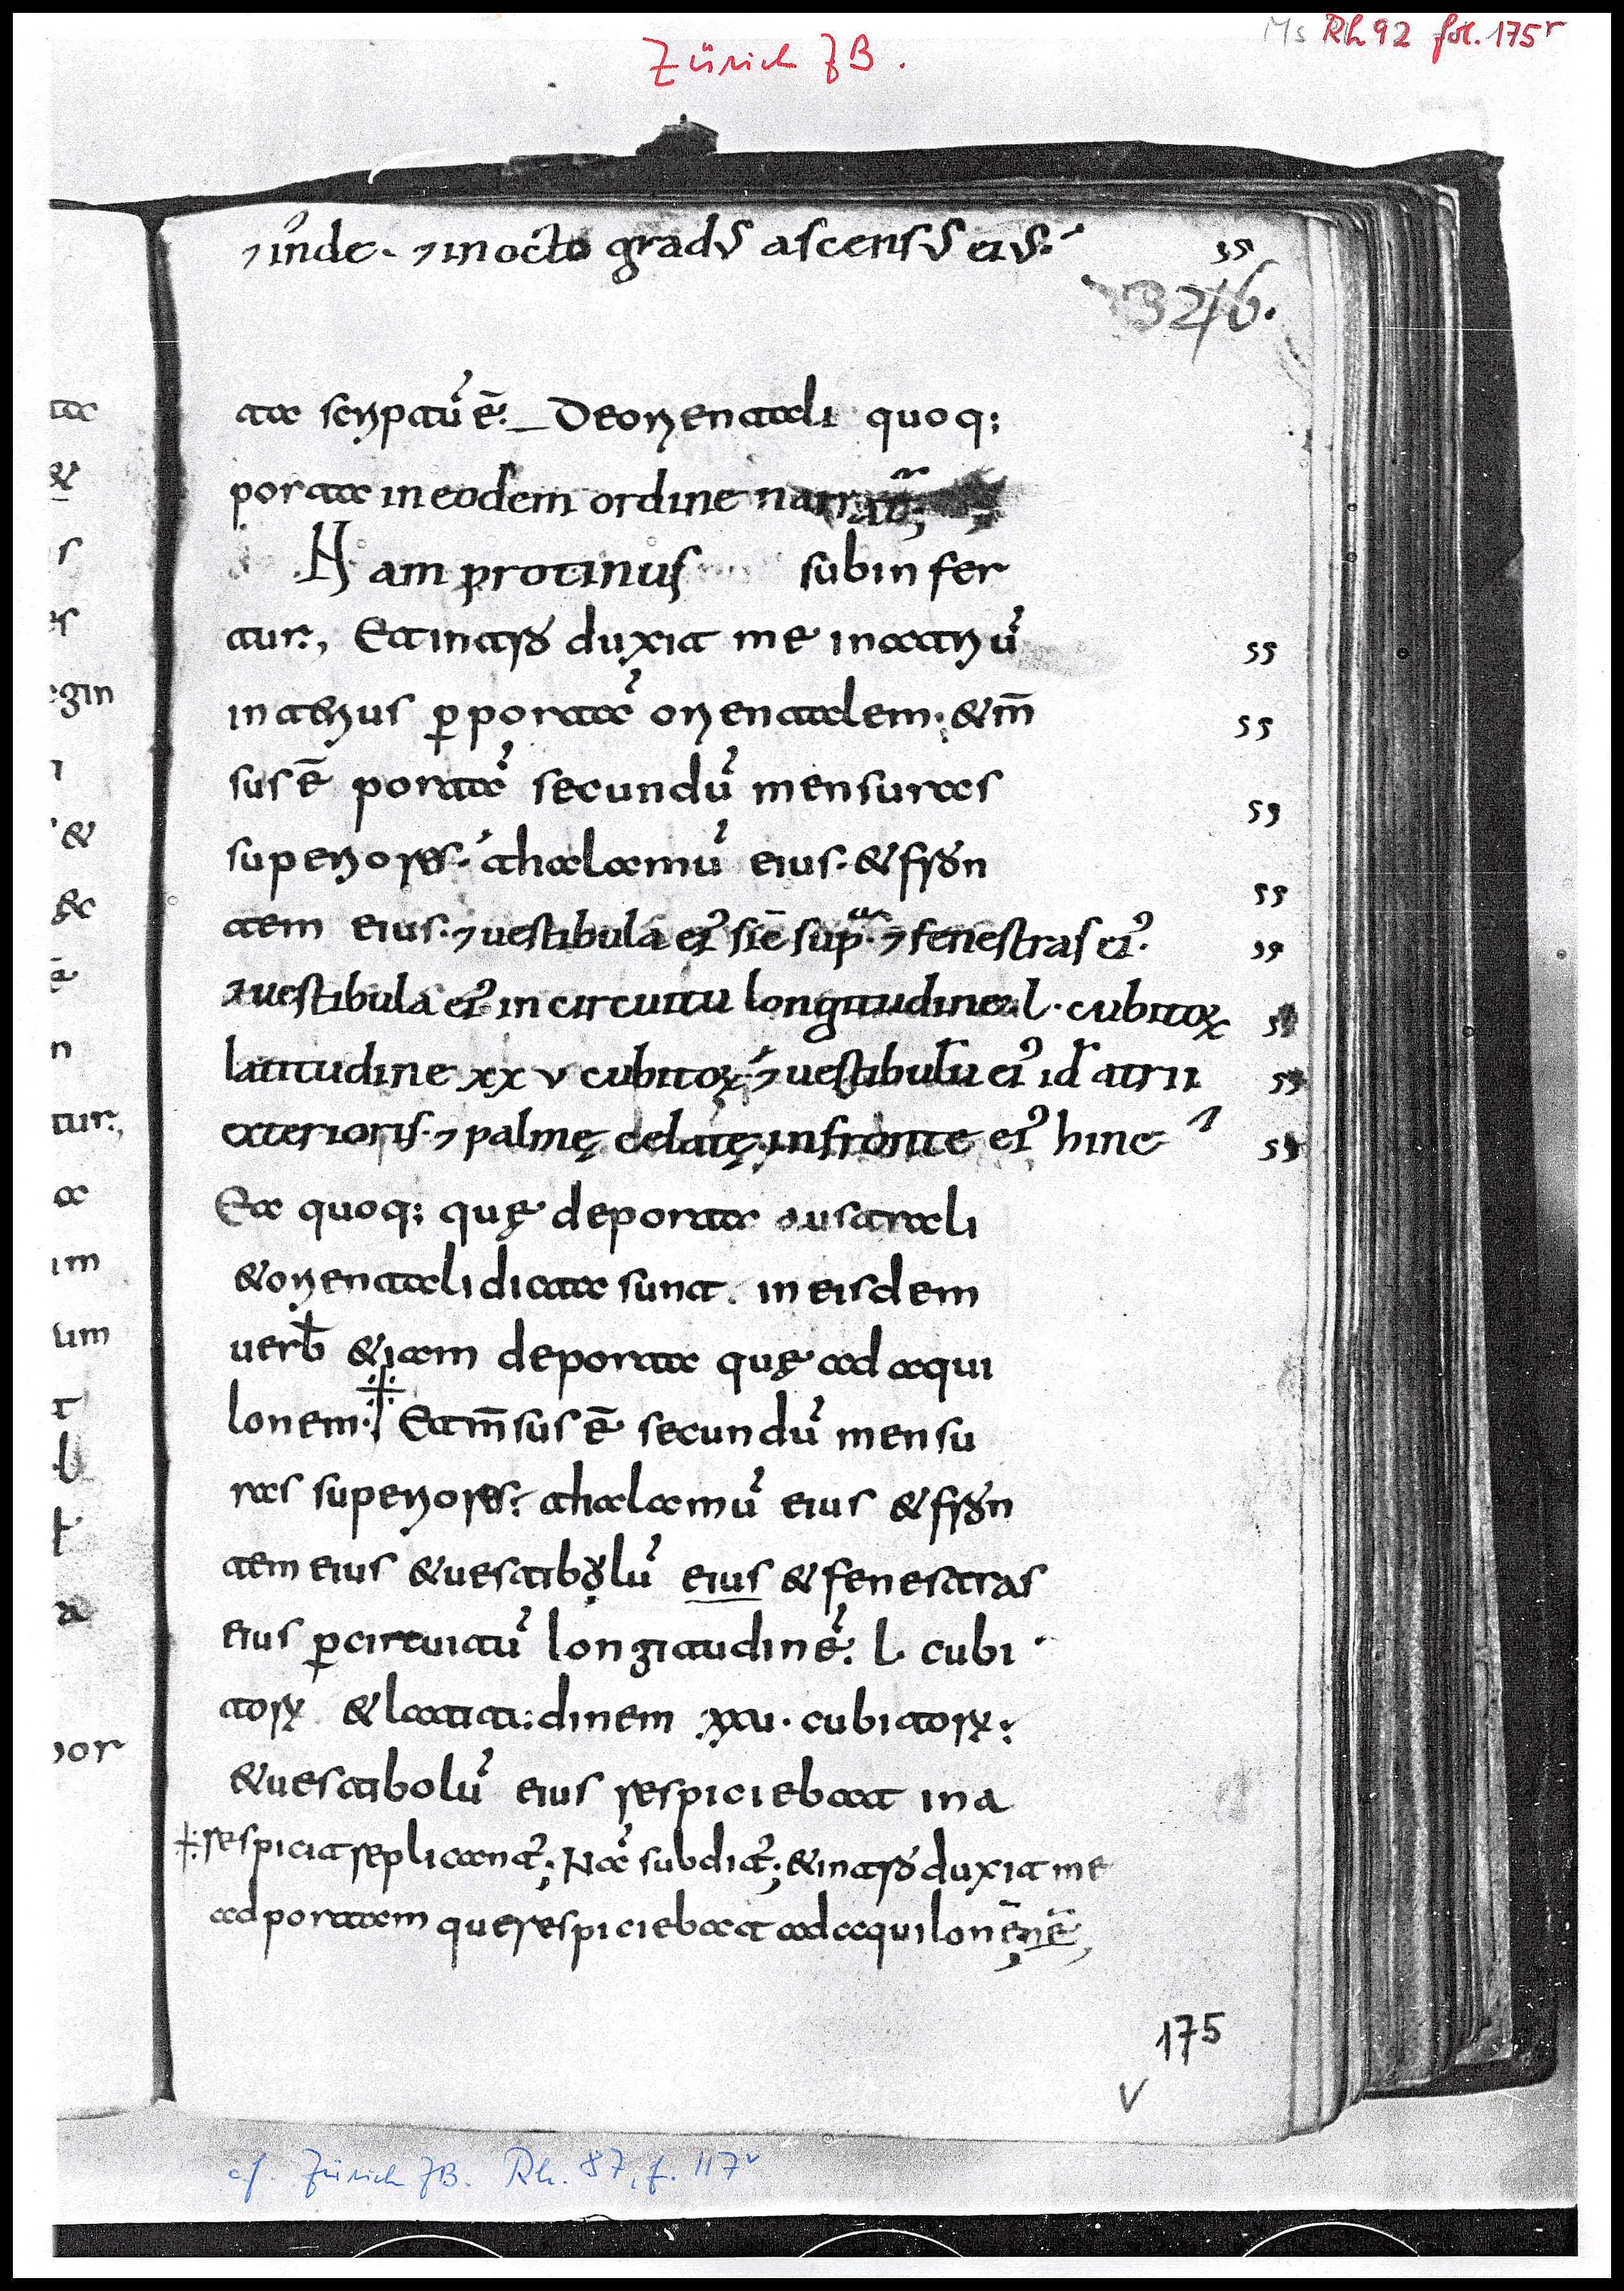 Ms Rh 92 fol. 175r
Zürich ZB.
⁊ inde. ⁊ in octo gradus ascensus eius.
3246.
ta scriptū ē. De orientali quoq;
porta in eodem ordine narratur;
Nam protinus subinfer
tur, Et introduxit me in atriū
interius p portā orientalem; & m̄
sus ē portā secundū mensuras
superiores. thalamū eius. & fron
tem eius. ⁊ uestibula ei' sic sup̄ ⁊ fenestras ei'.
⁊ uestibula ei' in circuitu longitudine l. cubitoꝝ
latitudine xx v cubitoꝝ ⁊ uestibulū ei' id atrii
exterioris. ⁊ palmę celatę in fronte ei' hinc
Ea quoq; quę de porta australi
& orientali dicta sunt. in eisdem
uerb & iam de porta quę ad aqui
lonem. Et m̄sus ē secundū mensu
ras superiores. thalamū eius & fron
tem eius & uestibolū eius & fenestras
eius p circuitū longitudinē. l. cubi
toꝝ & latitudinem xxu. cubitoꝝ.
& uestibolū eius respiciebat in a
respicit replicant'; Nā subdit'; & introduxit me
ad portam que respiciebat ad aquilonē
175
v
cf. Zürich ZB. Rh. 87, f. 117v